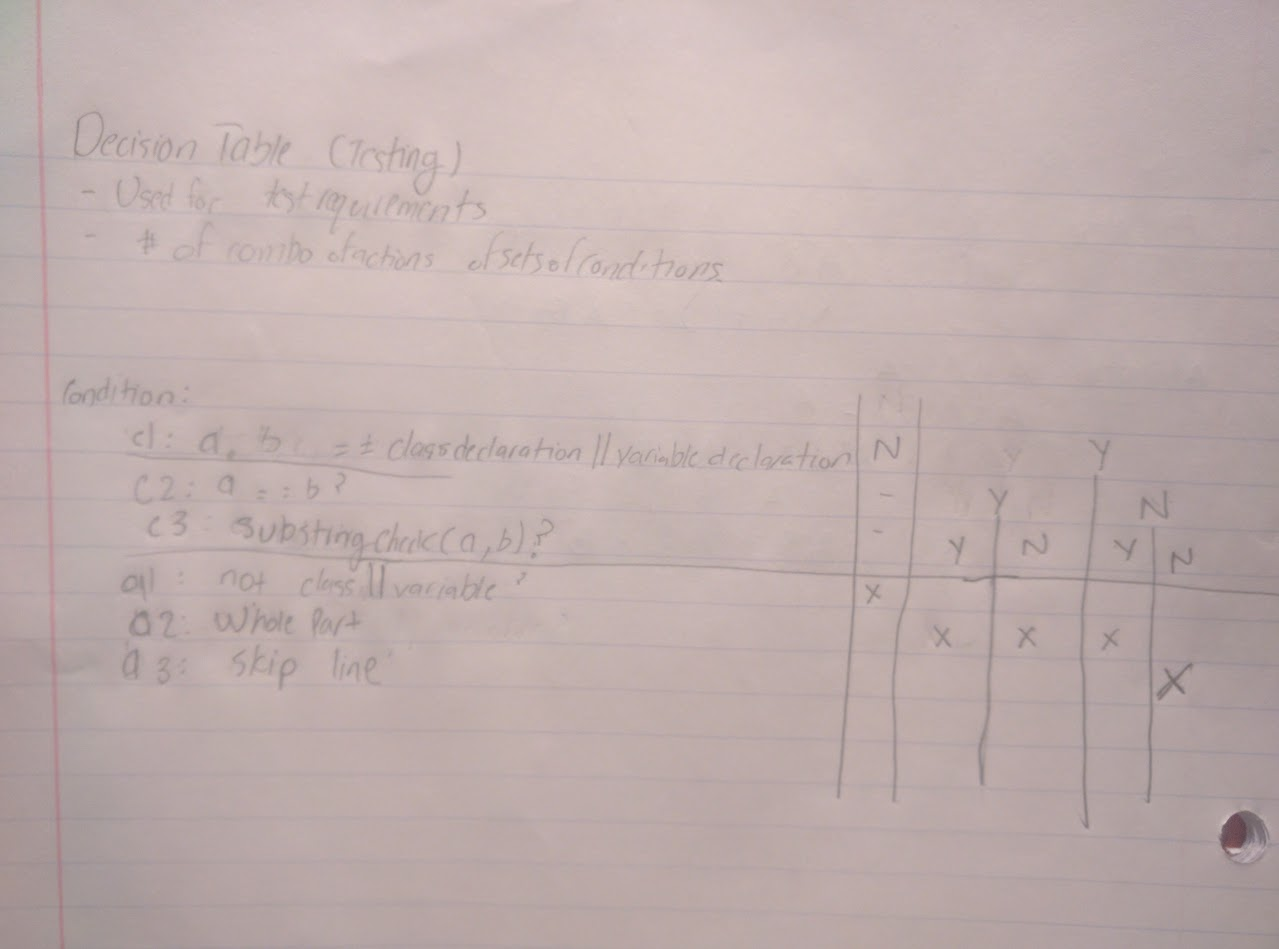 Decision Table (Testing)
- Used for test requirements
- # of combo of actions of sets of conditions
Condition:
c1: a, b = ± class declaration || variable declaration N Y
c2: a = = b? - Y N
c3: substing check(a,b)? - Y N Y N
a1: not class || variable? X
a2: Whole Part X X X
a3: skip line X